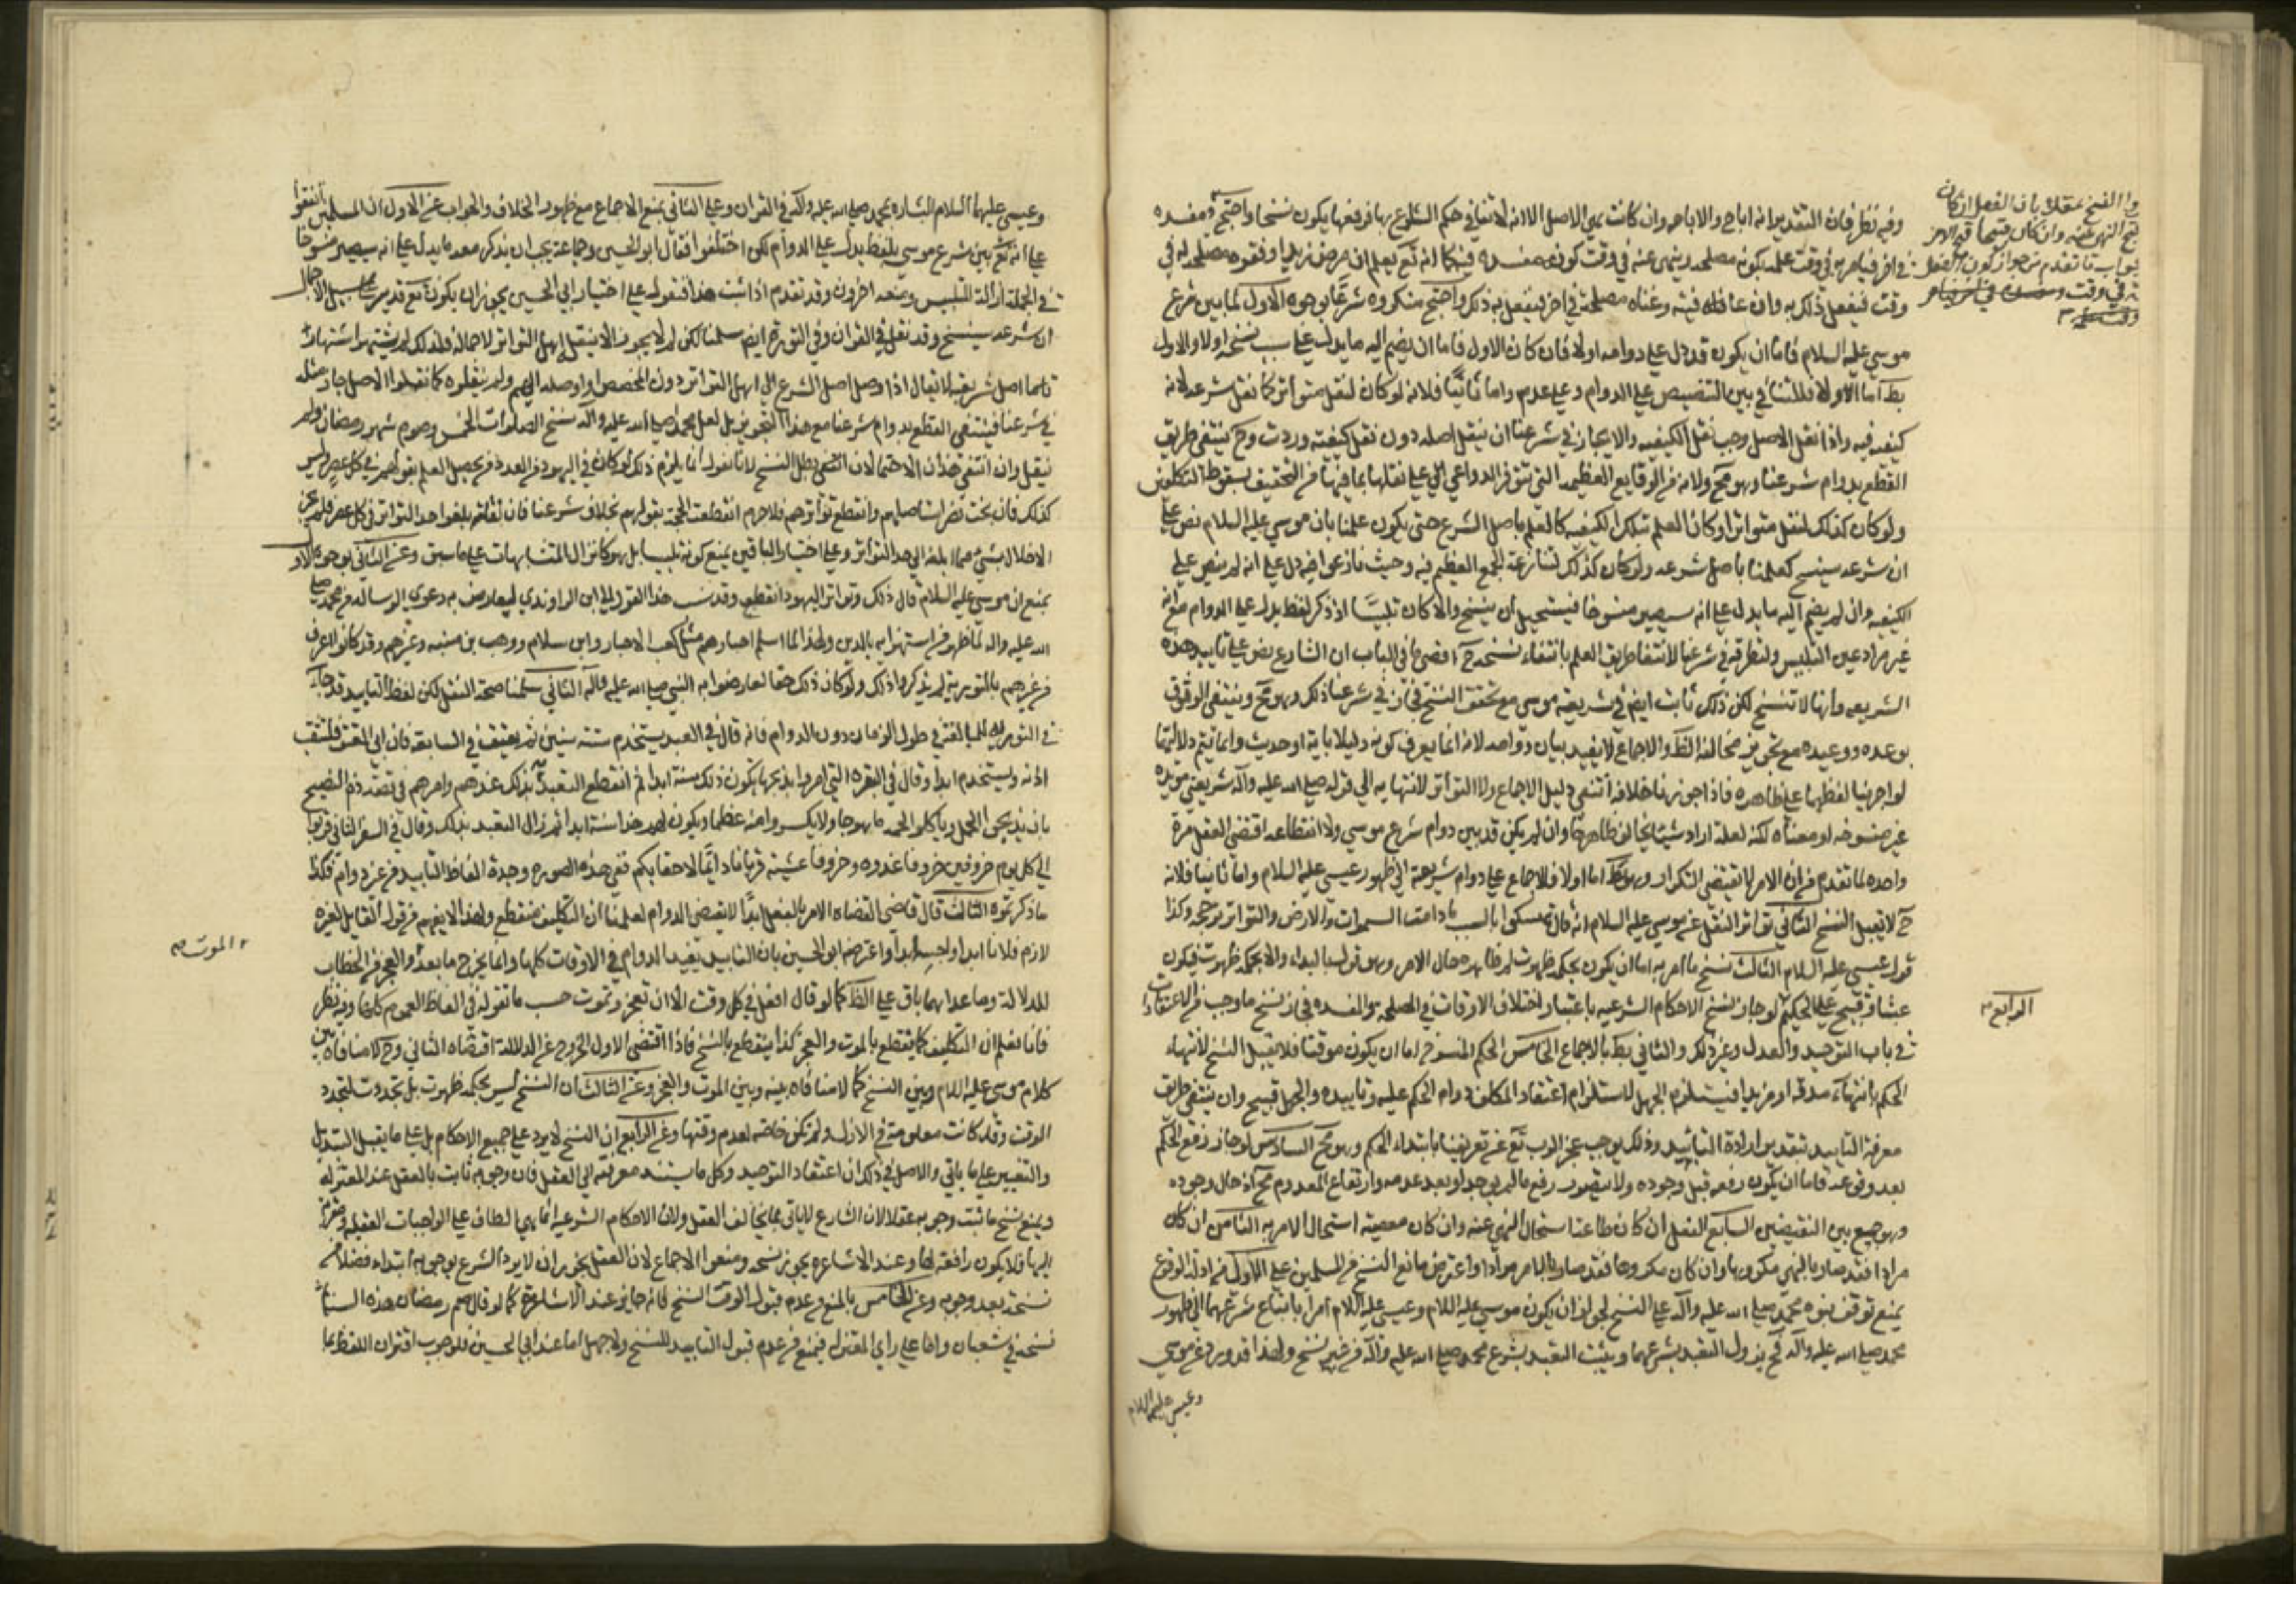 وفيه نظر فان التقدير انه اباح والاباحه وان كانت هي الاصل الا انه لا تنافي حكم الشرع بها فرفعها يكون نسخا واحتج
في اخر فيامر به في وقت علمه بكونه مصلحه وينهى عنه في وقت كونه مفسده فيكما انه تع يعلم ان مرض زيد او فقره مصلحه له في
وقت فيفعل ذلك به وان عافاه فيه وغناه مصلحة في اخر فيفعل به ذلك واحتج منكروه شرعًا بوجوه الاول لما بين شرع
موسى عليه السلام فاما ان يكون قد دل على دوامه اولا فان كان الاول فاما ان يضم اليه ما يدل على سبب نسخه اولا والاول
بط اما الاولا فللتنافي بين التنصيص على الدوام وعلى عدمه واما ثانيًا فلانه لو كان لنقل متواترا كما نقل شرعه لانه
كيفيه فيه واذا نقل الاصل وجب نقل الكيفيه والا لجاز في شرعنا ان ينقل اصله دون نقل كيفيته وردت وح ينتفي طريق
القطع بدوام شرعنا وهو مح ولانه من الوقايع العظيمه التي تتوفر الدواعي الى على نقلها بما فيها من التخفيف بسقوط التكليف
ولو كان كذلك لنقل متواترا وكان العلم بتلك الكيفيه كالعلم باصل الشرع حتى يكون علمنا بان موسى عليه السلام نص على
ان شرعه سينسخ كعلمنا باصل شرعه ولو كان كذلك لتنازعه الجمع العظيم فيه وحيث نازعوا فيه دل على انه لم ينص على
الكيفيه وان لم يضم اليه ما يدل على انه سيصير منسوخا فيستحيل ان ينسخ والا كان تلبيسًا اذ ذكر لفظ يدل على الدوام مع انه
غير مراد عين التلبيس ولتطرقه في شرعنا لانتفا طريق العلم بانتفاء نسخه ح اقصى ما في الباب ان الشارع نص على تابيد هذه
الشريعه وانها لا تنسخ لكن ذلك ثابت ايضم في شريعة موسى مع تحقق النسخ فجاز في شرعنا ذلك وهو مح وينتفي الوثوق
بوعده ووعيده مع تجويز مخالفة الظ والاجماع لا يفيد بيان دوامه لانه انما يعرف كونه دليلا باية او حديث وانما تتم دلالتهما
لو اجرينا لفظهما على ظاهره فاذا جوزنا خلافه انتفى دليل الاجماع ولا التواتر لانتهايه الى قوله صلى الله عليه وآله شريعتي مؤبده
غير منسوخه او معناه لكنه لعله اراد شيئا يخالف ظاهرها وان لم يكن قد بين دوام شرع موسى ولا انقطاعه اقتضى الفعل مرة
واحده لما تقدم من ان الامر لا يقتضي التكرار وهو بط اما اولا فللاجماع على دوام شريعته الى ظهور عيسى عليه السلام واما ثانيا فلانه
ح لا يقبل النسخ الثاني تواتر النقل عن موسى عليه السلام انه قال تمسكوا بالسبت ما دامت السموات والارض والتواتر حجه وكذا
قول عيسى عليه السلام الثالث نسخ ما امر به اما ان يكون لحكمه ظهرت له حال الامر وهو قول بالبداء والا لحكمه ظهرت فيكون
عبثا وقبيح على الحكيم لو جاز نسخ الاحكام الشرعيه باعتبار اختلاف الاوقات في المصلحه والمفسده لجاز نسخ ما وجب من الاعتقادات
في باب التوحيد والعدل وغير ذلك والثاني بط بالاجماع الخامس الحكم المنسوخ اما ان يكون موقتا فلا يقبل النسخ لانتهاء
الحكم بانتهاء مدته او مؤبدا فيستلزم الجهل لاستلزام اعتقاد المكلف دوام الحكم عليه وتابيده والجهل قبيح وان ينتفي طريق
معرفة التابيد بتقدير ارادة التابيد وذلك يوجب عجز الرب تع عن تعريفنا بابتداء الحكم وهو مح السادس لو جاز رفع الحكم
بعد وقوعه فاما ان يكون رفعه قبل وجوده ولا يتصور رفع ما لم يوجد او بعد عدمه وارتفاع المعدوم مح او حال وجوده
وهو جمع بين النقيضين السابع الفعل ان كان طاعة استحال النهي عنه وان كان معصية استحال الامر به الثامن ان كان
مرادا فقد صار بالنهي مكروها وان كان مكروها فقد صار بالامر مرادا واعترض مانع النسخ من المسلمين على الاول من ادلة الوقوع
يمنع توقف نبوة محمد صلى الله عليه وآله على النسخ لجواز ان يكون موسى عليه السلام وعيسى عليه السلام امرا باتباع شرعهما الى ظهور
محمد صلى الله عليه وآله فح يزول التعبد بشرعهما ويثبت التعبد بشرع محمد صلى الله عليه وآله من غير نسخ ولهذا قد ورد عن موسى
وعيسى عليهما السلام
الرابع
وعيسى عليهما السلام البشاره بمحمد صلى الله عليه وآله في القران وعلى الثاني بمنع الاجماع مع ظهور الخلاف والجواب عن الاول ان المسلمين اتفقوا
على انه تع بين شرع موسى بلفظ يدل على الدوام لكن اختلفوا فقال ابو الحسين وجماعة يجب ان يذكر معه ما يدل على انه سيصير منسوخا
في الجمله ازالة للتلبيس ومنعه اخرون وقد تقدم اذا ثبت هذا فنقول على اختيار ابي الحسين يجوز ان يكون تع قد بين على سبيل الاجمال
ان شرعه سينسخ وقد نقل في القران وفي التورية ايضم سلمنا لكن لم لا يجوز الا ينقل اهل التواتر لاجماله فلذلك لم يشتهر اشتهار
اصل شريعته لا يقال اذا وصل اصل الشرع الى اهل التواتر دون المخصص او اوصله اليهم ولم ينقلوه كما نقلوا الاصل جاز مثله
في شرعنا فينتفي القطع بدوام شرعنا مع هذا التجويز بل لعل محمدا صلى الله عليه وآله نسخ الصلوات الخمس وصوم شهر رمضان ولم
ينقل وان انتفى هذان الاحتمالان انتفى بطل النسخ لانا نقول انما يلزم ذلك لو كان في اليهود من العدد من يحصل العلم بقولهم في كل عصر وليس
كذلك فان بخت نصر استاصلهم وانقطع تواترهم فلا جرم انقطعت الحجة بقولهم بخلاف شرعنا فان نقلته بلغوا حد التواتر في كل عصر فلم يجز
الاخلال بشئ مما بلغ الى حد التواتر وعلى اختيار الباقين يمنع كونه تلبيسا بل هو كانزال المتشابهات على ما سبق وعن الثاني بوجوه الاول
بمنع ان موسى عليه السلام قال ذلك وتواتر اليهود انقطع وقد نسب هذا القول الى ابن الراوندي ليعارض به دعوى الرساله من محمد صلى
الله عليه واله لما ظهر من استهزايه بالدين ولهذا لما اسلم احبارهم مثل كعب الاحبار وابن سلام ووهب بن منبه وغيرهم وقد كانوا اعرف
من غيرهم بالتورية لم يذكروا ذلك ولو كان ذلك حقا لعارضوا به النبي صلى الله عليه وآله الثاني سلمنا صحة النقل لكن لفظ التابيد قد جاء
في التورية للمبالغة في طول الزمان دون الدوام فانه قال في العبد يستخدم ستة سنين ثم يعتق في السابعه فان ابى العتق فلتثقب
اذنه ويستخدم ابدا وقال في البقره التي امروا بذبحها يكون ذلك سنة ابدا ثم انقطع التعبد بذلك عندهم وامرهم في قصة دم الفصيح
بان يذبحوا الجمل وياكلوا لحمه ملهوجا ولا يكسروا منه عظما ويكون لهم هذا سنة ابدا ثم زال التعبد بذلك وقال في السفر الثاني قربوا
الي كل يوم خروفين خروفا غدوه وخروفا عشية قربانا دايمًا لاحقابكم ففي هذه الصوره وجدت الفاظ التابيد من غير دوام فكذا
ما ذكرتموه الثالث قال قاضي القضاه الامر بالفعل ابدًا لا يقتضي الدوام لعلمنا ان التكليف منقطع ولهذا لا يفهم من قول القايل لغيره
لازم فلانا ابدا او احبسه ابدا واعترضه ابو الحسين بان التابيد يفيد الدوام في الاوقات كلها وانما يخرج ما بعد والعجز من الخطاب
للدلالة وما عداهما باق على الظ كما لو قال افعل في كل وقت الا ان تعجز وتموت حسب ما نقوله في الفاظ العموم كلها وفيه نظر
فانا نعلم ان التكليف كما ينقطع بالموت والعجز كذا ينقطع بالنسخ فاذا اقتضى الاول الخروج عن الدلالة اقتضاه الثاني وح لا منافاة بين
كلام موسى عليه السلام وبين النسخ كما لا منافاه بينه وبين الموت والعجز وعن الثالث ان النسخ ليس لحكمه ظهرت بل تجددت لتجدد
الوقت وقد كانت معلومة في الازل ولم تكن خاصه لعدم وقتها وعن الرابع ان النسخ لا يرد على جميع الاحكام بل على ما يقبل التبديل
والتغيير على ما ياتي والاصل في ذلك ان اعتقاد التوحيد وكل ما يستند معرفته الى العقل فان وجوبه ثابت بالعقل عند المعتزله
ويمنع نسخ ما ثبت وجوبه عقلا لان الشارع لا ياتي بما يخالف العقل ولان الاحكام الشرعيه انما هي الطاف على الواجبات العقليه
اليها فلا يكون رافعه لها وعند الاشاعره يجوز نسخه ومنعوا الاجماع لان العقل يجوز ان لا يرد الشرع بوجوبه ابتداء فضلا عن
نسخه بعد وجوبه وعن الخامس بالمنع من عدم قبول الوقت النسخ فانه جايز عند الاشاعرة كما لو قال صم رمضان هذه السنة ثم
نسخه في شعبان واما على راي المعتزله فيمنع من عدم قبول التابيد للنسخ ولا جهل اما عند ابي الحسين فلوجوب اقتران اللفظ بما
الموت